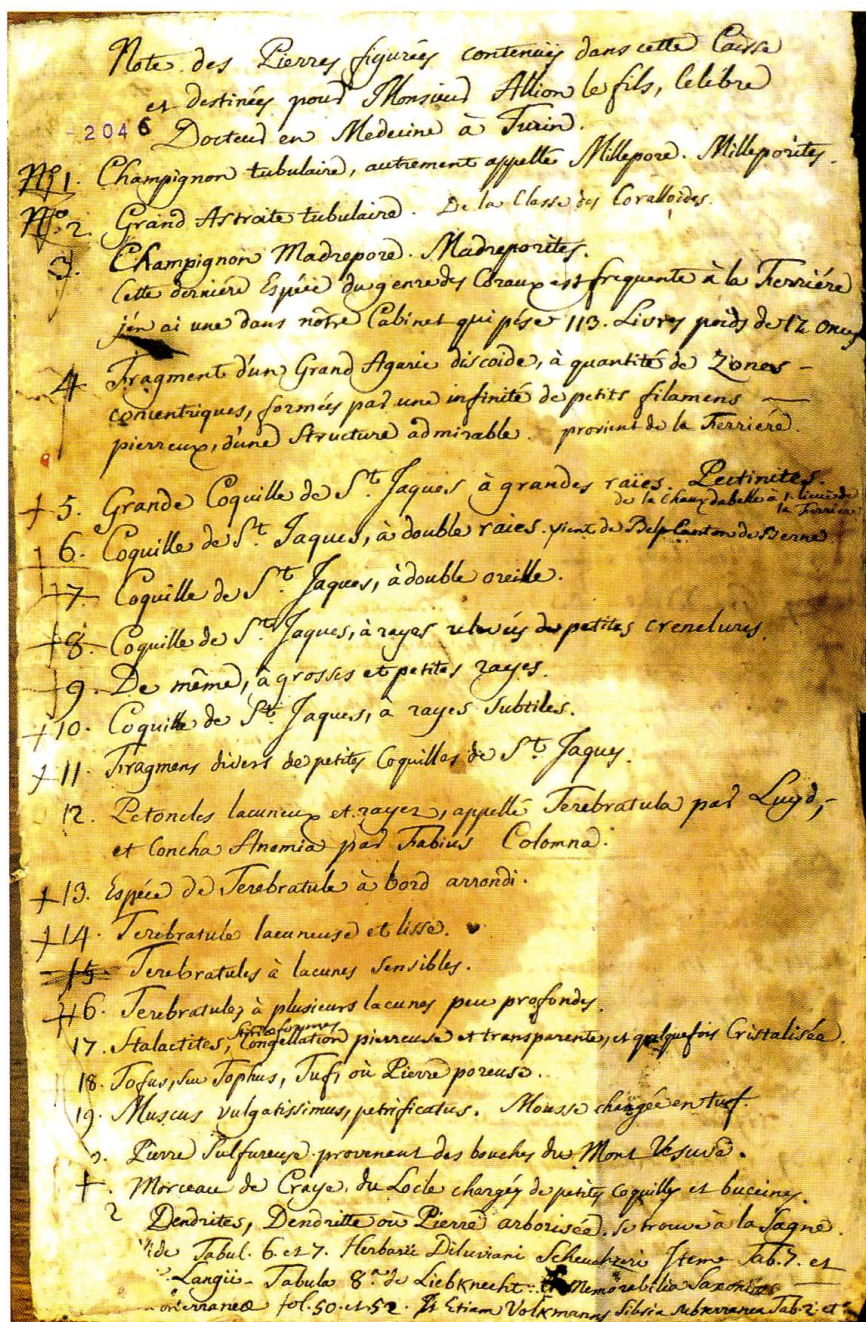 Note des Pierres figurées contenües dans cette Caisse
et destinées pour Monsieur Allion le fils, célébre
2046
Docteur en Medecine à Turin.
Nº 1. Champignon tubulaire, autrement appellé Millepore. Milleporites.
Nº 2 Grand Astroite tubulaire. De la Classe des Coralloides.
3. Champignon Madrepore. Madreporites.
Cette derniére Espéce du genre des Coraux est frequente à la Ferriére
j'en ai une dans nôtre Cabinet qui pése 113. Livres poids de 17 onces
4 Fragment d'un Grand Agaric discoide, à quantité de Zones –
concentriques, formées par une infinité de petits filamens —
pierreux, d'une Structure admirable. provient de la Ferriére.
+ 5. Grande Coquille de St. Jaques à grandes raïes. Pectinites.
de la Chaux d'abelle à 1. lieüe de
la Ferriere
+ 6. Coquille de St. Jaques, à double raies. vient de Belp Canton de Berne
+ 7. Coquille de St. Jaques, à double oreille.
+ 8. Coquille de St. Jaques, à rayes relevées de petites crenelures.
+ 9. De même, à grosses et petites rayes.
+ 10. Coquille de St. Jaques, à rayes subtiles.
+ 11. Fragmens divers de petites Coquilles de St. Jaques.
12. Petoncles lacuneux et rayez, appellé Terebratula par Luyd,
et Concha Anomia par Fabius Colomna.
+ 13. Espéce de Terebratule à bord arrondi.
+ 14. Terebratule lacuneuse et lisse.
15. Terebratules à lacunes sensibles.
+ 16. Terebratules à plusieurs lacunes peu profondes.
17. Stalactites, Congellation pierreuse et transparente, et quelquefois Cristalisée.
18. Tofus, seu Tophus, Tuf, où Pierre poreuse.
19. Muscus vulgatissimus, petrificatus. Mousse changée en tuf.
Pierre Sulfureuse provenant des bouches du Mont Vesuve.
+. Morceau de Craye, du Locle chargés de petits coquilles et buccins.
2 Dendrites, Dendritte où Pierre arborisée. se trouve à la Sagne.
Vide Tabul. 6. et 7. Herbarii Diluviani Scheuchzeri Item Tab. 7. et
Langii – Tabula 8.a de Liebknecht Memorabilia Saxoniæ —
fol. 50. et 52. Et Etiam Volkmanns Silesia subterranea Tab. 2. et